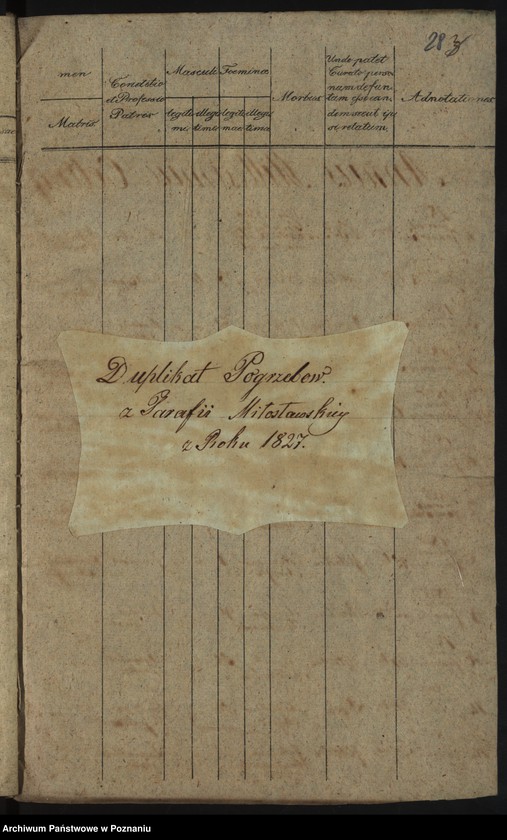 28
men
Matris
Conditio
et Professio
Patris
Masculi
legiti
mi
illegi
timi
Foeminæ
legiti
mae
illegi
timæ
Morbus
Unde patet
Curato perso
nam defun
tam
dem
se relatum.
Adnotationes
Duplikat Pogrzebow.
z Parafii Miłosławskiey
z Roku 1827.
Archiwum Państwowe w Poznaniu